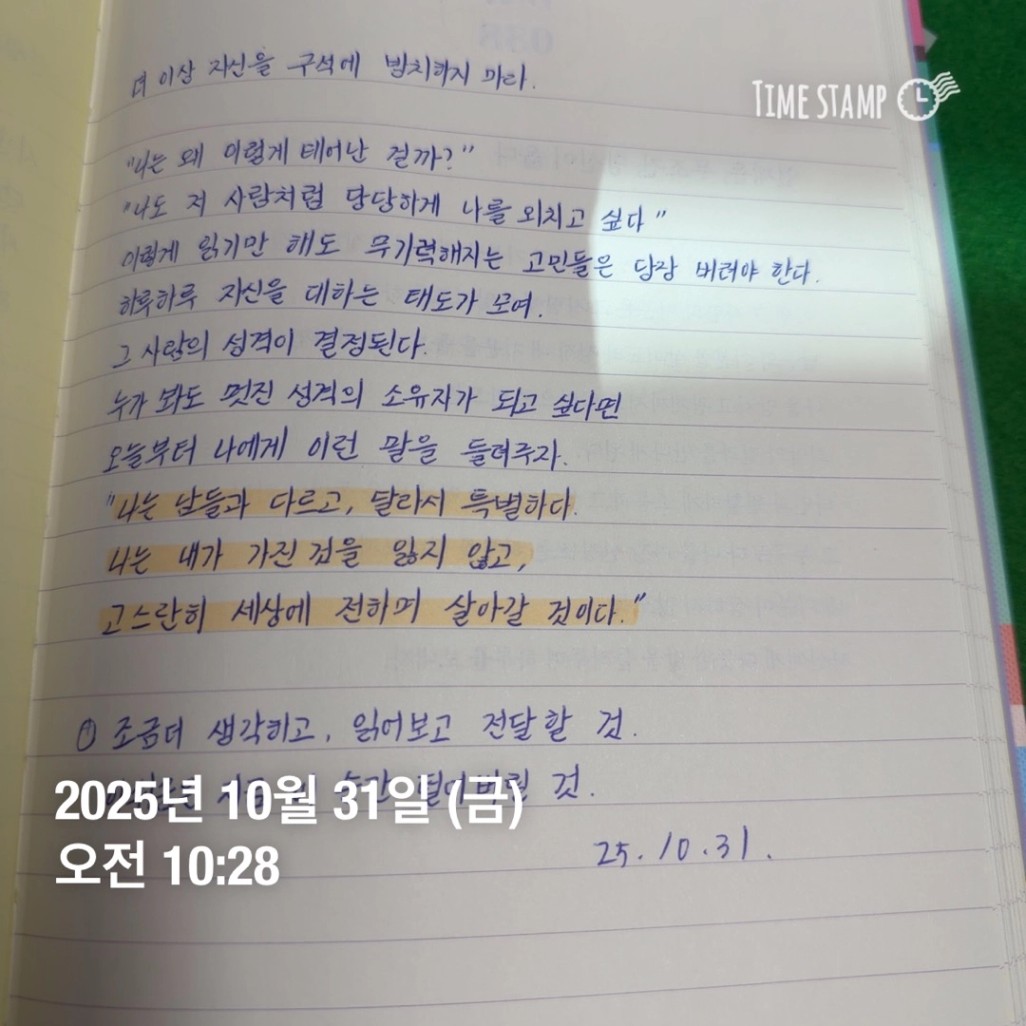 TIME STAMP
더 이상 자신을 구석에 방치하지 마라.
"나는 왜 이렇게 태어난 걸까?"
"나도 저 사람처럼 당당하게 나를 외치고 싶다"
이렇게 읽기만 해도 무기력해지는 고민들은 당장 버려야 한다.
하루하루 자신을 대하는 태도가 모여.
그 사람의 성격이 결정된다.
누가 봐도 멋진 성격의 소유자가 되고 싶다면
오늘부터 나에게 이런 말을 들려주자.
"나는 남들과 다르고, 달라서 특별하다.
나는 내가 가진 것을 잃지 않고,
고스란히 세상에 전하며 살아갈 것이다."
① 조금더 생각하고, 읽어보고 전달할 것.
것.
2025년 10월 31일 (금)
오전 10:28
25.10.31.